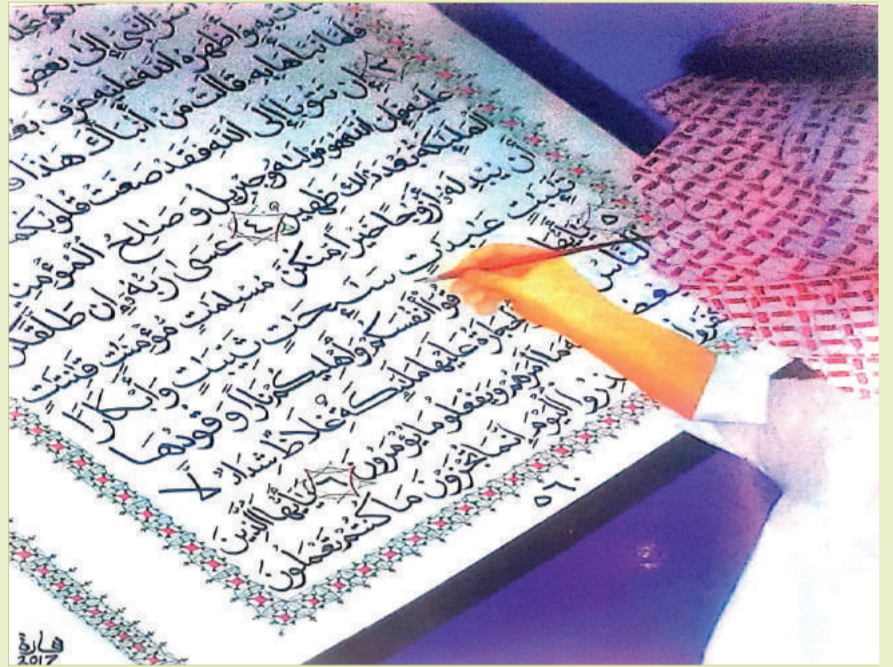 أسر النبي إلى بعض
به وأظهره الله عليه عرف بعض
فلما نبأها به قالت من أنبأك هذا
٣ إن تتوبا إلى الله فقد صغت قلوبكما
عليه فإن الله هو مولىه وجبريل وصلح المؤمنين
الملئكة بعد ذلك ظهير ٤ عسى ربه إن طلقكن
أن يبدله أزوجا خيرا منكن مسلمت مؤمنت قنتت
تئبت عبدت سئحت ثيبت وأبكارا
قوا أنفسكم وأهليكم نارا وقودها
الناس عليها ملئكة غلاظ شداد لا
ما أمرهم ويفعلون ما يؤمرون ٦ يأيها الذين
اليوم إنما تجزون ما كنتم تعملون
٥٦٠
2017